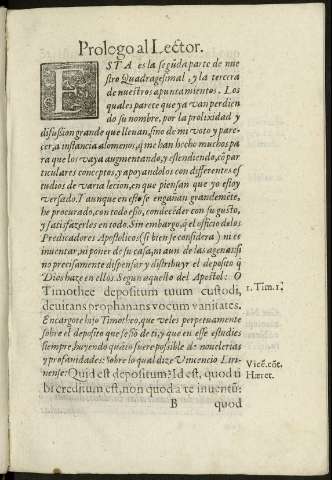 Prologo al Lector.
ESTA es la segũda parte de nue
stro Quadragesimal, y la tercera
de nuestros apuntamientos. Los
quales parece que ya van perdien
do su nombre, por la prolixidad y
difusion grande que lleuan, sino de mi voto y pare-
cer, a instancia alomenos, q̃ me han hecho muchos pa
ra que los vaya augmentando, y estendiendo, cõ par
ticulares conceptos, y apoyandolos con differentes es
tudios de varia lecion, en que piensan que yo estoy
versado. Y aunque en esto se engañan grandemẽte,
he procurado, con todo esso, condecẽder con su gusto,
y satisfazerles en todo. Sin embargo, q̃ el officio de los
Predicadores Apostolicos (si bien se considera) ni es
inuentar, ni poner de su casa, ni aun de las agenas: si
no precisamente dispensar y distribuyr el deposito q̃
Dios haze en ellos. Segun aquesto del Apostol: O
Timothee depositum tuum custodi,
1. Tim. 1.
deuitans prophanas vocum vanitates.
Encargote hijo Timoteo, que veles perpetuamente
sobre el deposito que se fio de ti, y que en esse estudies
siempre, huyendo quãto fuere possible de nouelerias
y profanidades: Sobre lo qual dize Vincencio Liri-
Vicẽ. cõt.
nense: Quid est depositum? Id est, quod ti
Hæret.
bi creditum est, non quod a te inuentũ:
B quod